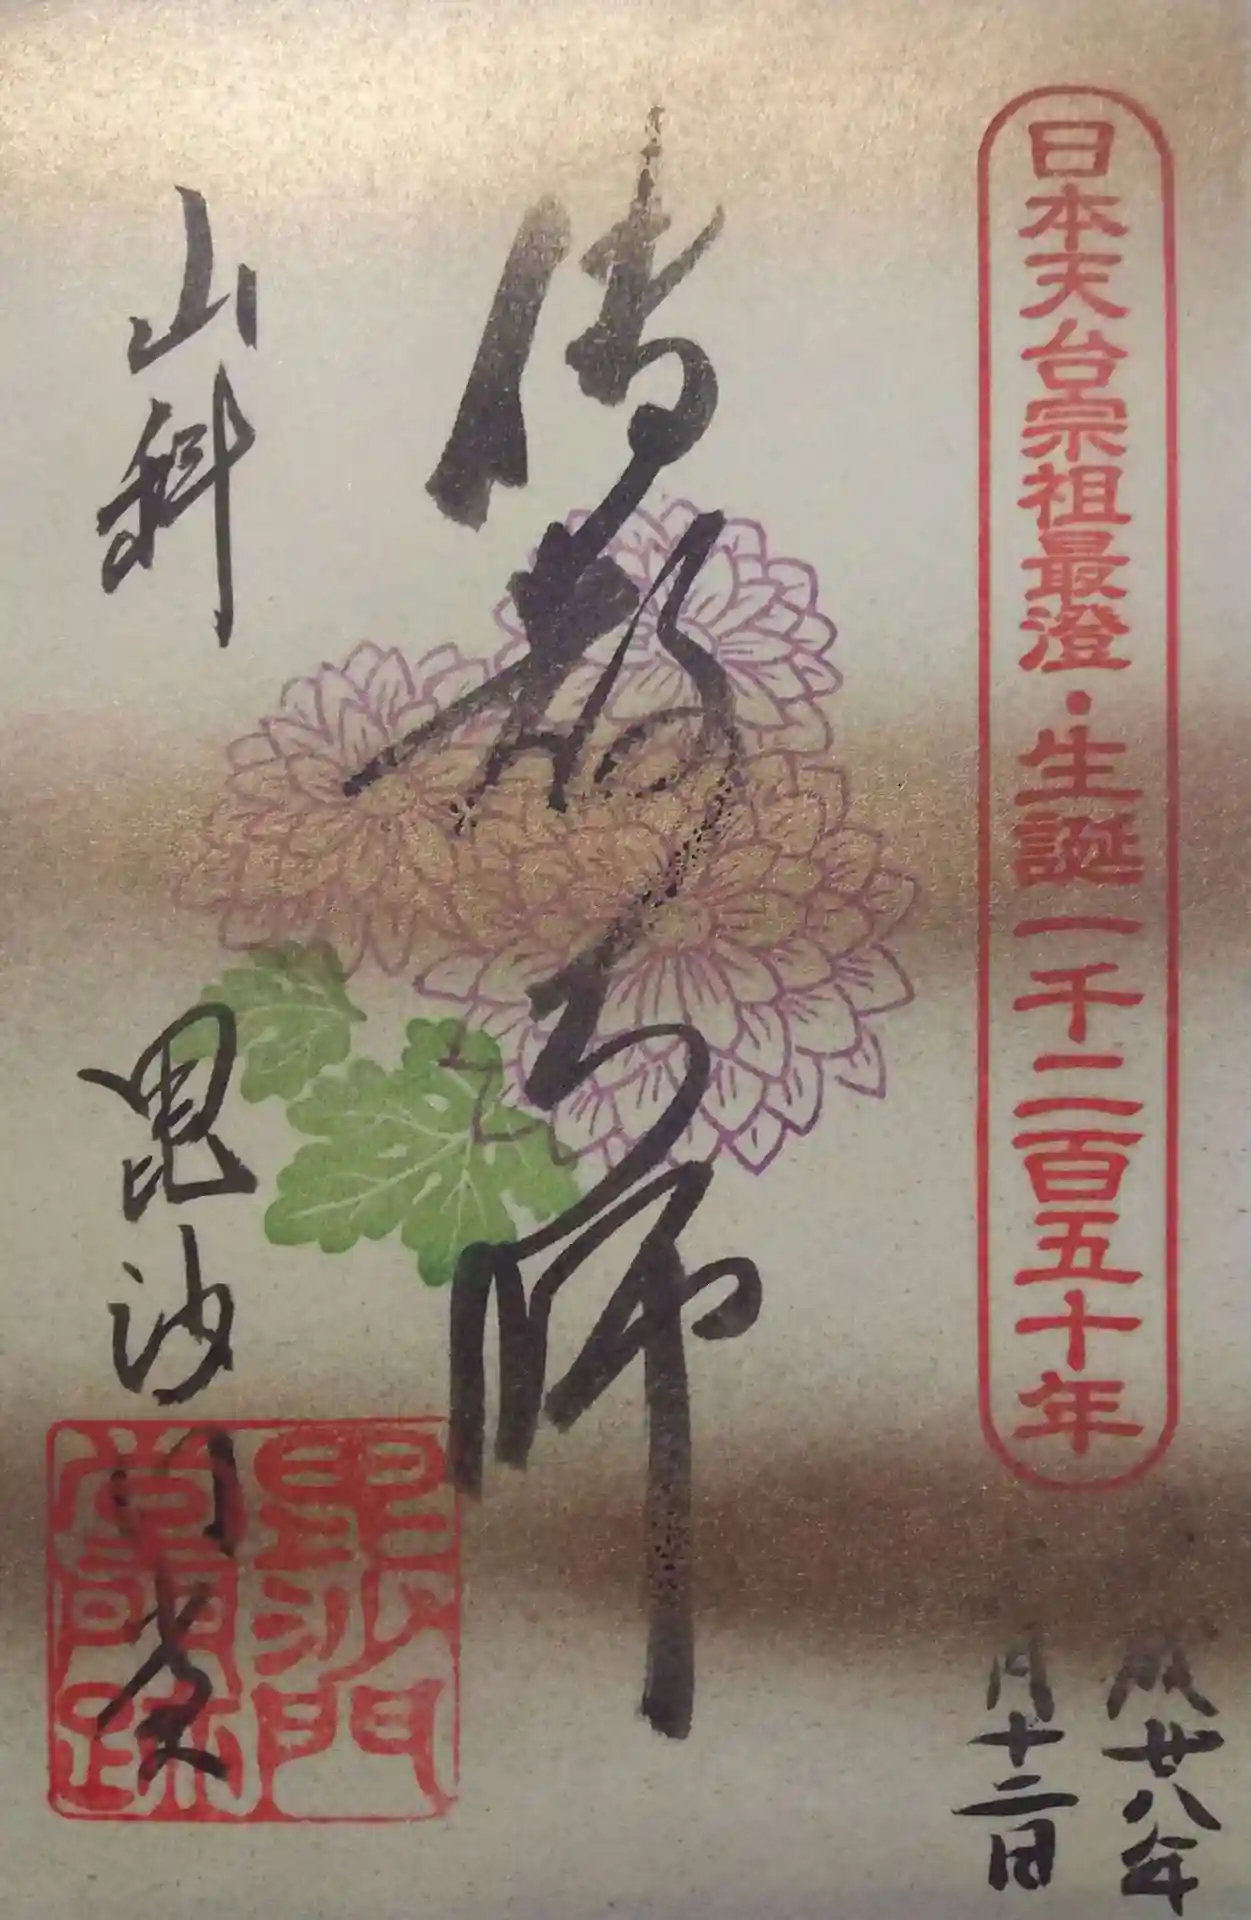 日本天台宗祖最澄・生誕一千二百五十年
成廿八年
月十二日
傳教大師
山科 毘沙門堂
毘沙門
堂門跡